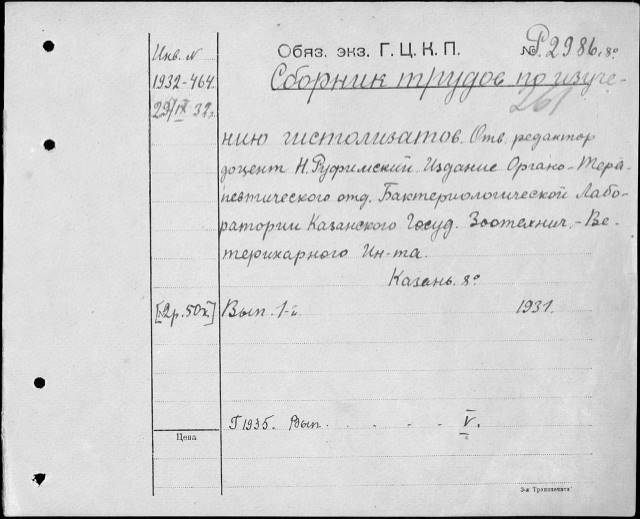 Инв. N
1932-464.
29/IX 32 г.
Обяз. экз. Г. Ц. К. П.
№ P2986. 8°
Сборник трудов по изуче-
261
нию гистолизатов. Отв. редактор
доцент Н. Руфимский. Издание Органо-Тера-
певтического отд. Бактериологической Лабо-
ратории Казанского Госуд. Зоотехнич.-Ве-
теринарного Ин-та.
Казань. 8°
[2р.50к.] Вып. 1-й. 1931.
Г1935. Вып. . . . . . V.
Цена
3-я Транспечати